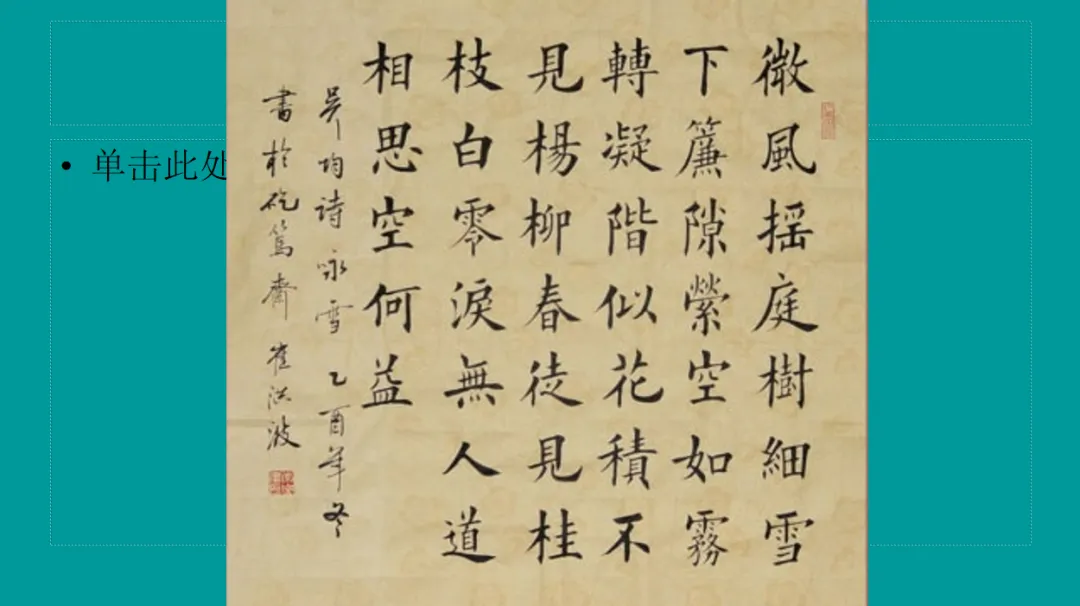 单击此处
微風摇庭樹細雪
下簾隙縈空如霧
轉凝階似花積不
見楊柳春徒見桂
枝白零淚無人道
相思空何益
吴均诗咏雪乙酉年冬
書於矻篤齋崔洪波